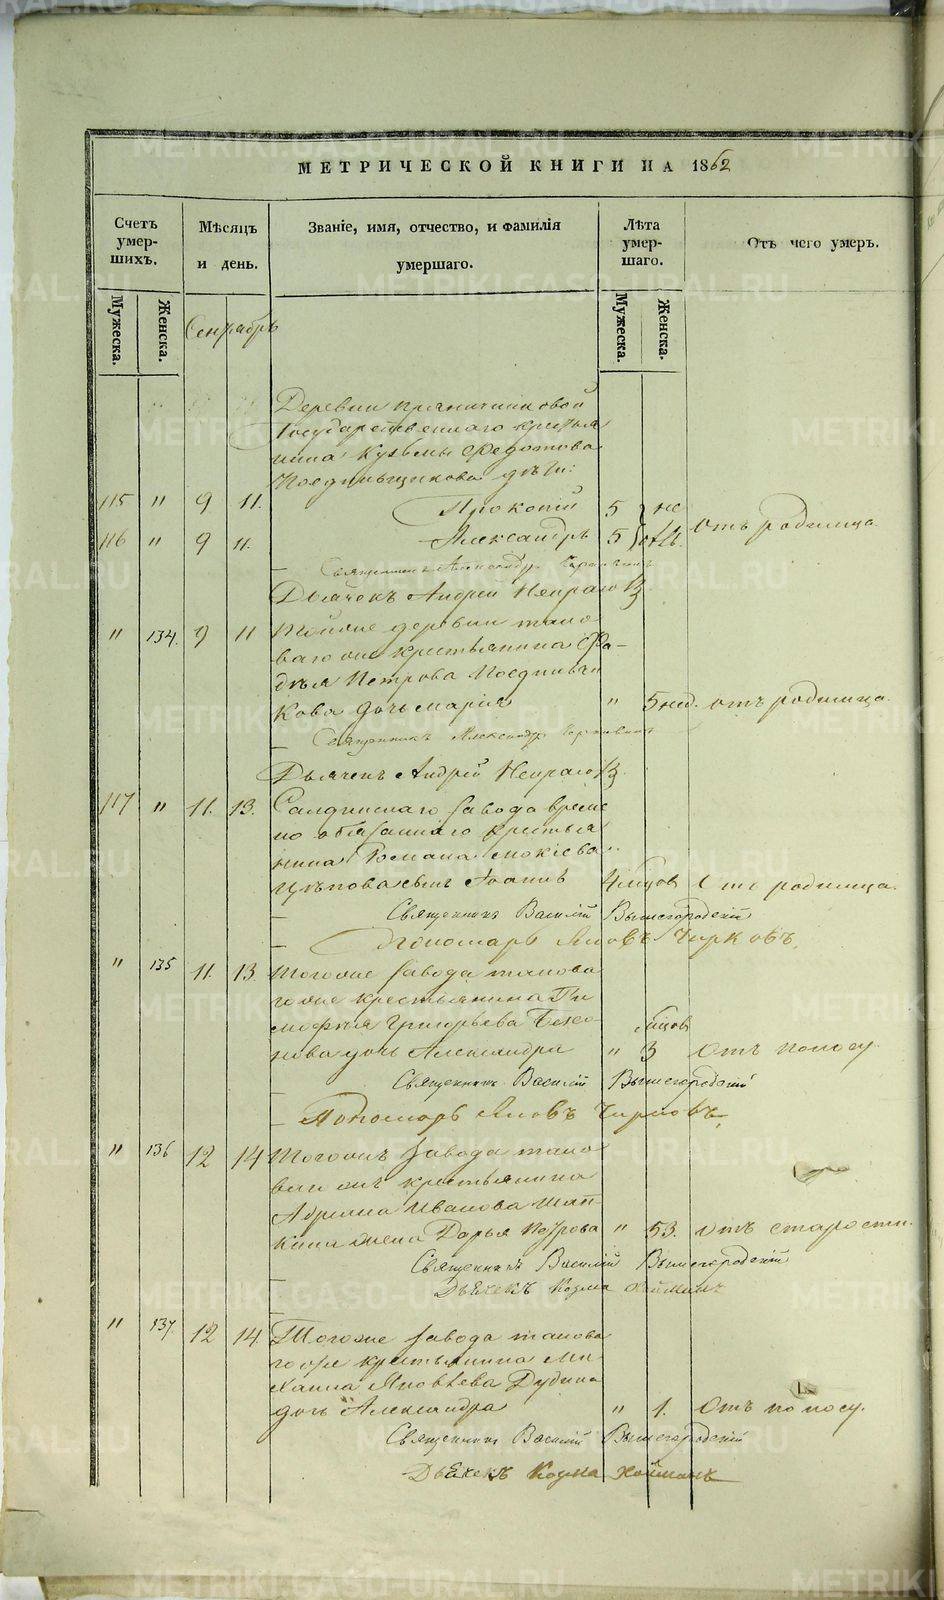 МЕТРИЧЕСКОЙ КНИГИ НА 1862
Счетъ умер-шихъ.
Мѣсяцъ и день.
Званіе, имя, отчество, и фамилія умершаго.
Лѣта умер-шаго.
Отъ чего умеръ.
Мужеска.
Женска.
Сентябрь
Мужеска.
Женска.
Деревни
Государственнаго крестья
нина Кузьмы Федотова
дѣти:
115 " 9 11. Прокопій 5 не
116 " 9 11. Александръ 5 отъ родимца.
Священникъ Александръ
Дьячекъ Андрей
" 134. 9 11 Тойже деревни тако
ваго же крестьянина Фа-
дѣя Петрова
кова дочь Марія " 5 нед. отъ родимца.
Священникъ Александръ
Дьячекъ Андрей
117 " 11. 13. Салдинскаго завода време
но обязаннаго крестья
нина Романа Мокіева
сынъ Іоаннъ 4 мцов Отъ родимца.
Священникъ Василій Вышегородскій
Пономарь Яковъ Чирковъ.
" 135 11. 13. Тогоже завода таково
гоже крестьянина Ти
мофѣя Григорьева
мцов
нова дочь Александра " 3 Отъ поносу.
Священникъ Василій Вышегородскій
Пономарь Яковъ Чирковъ.
" 136 12 14 Тогожъ завода тако
ваго жъ крестьянина
Адріана Иванова Шап-
кина жена Дарья Петрова " 53. Отъ старости.
Священникъ Василій Вышегородскій
Дьячекъ Козма
" 137. 12 14 Тогоже завода таково
гоже крестьянина Ми-
хаила Яковлева Дудина
дочь Александра " 1. Отъ поносу.
Священникъ Василій Вышегородскій
Дьячекъ Козма
METRIKI.GASO-URAL.RU